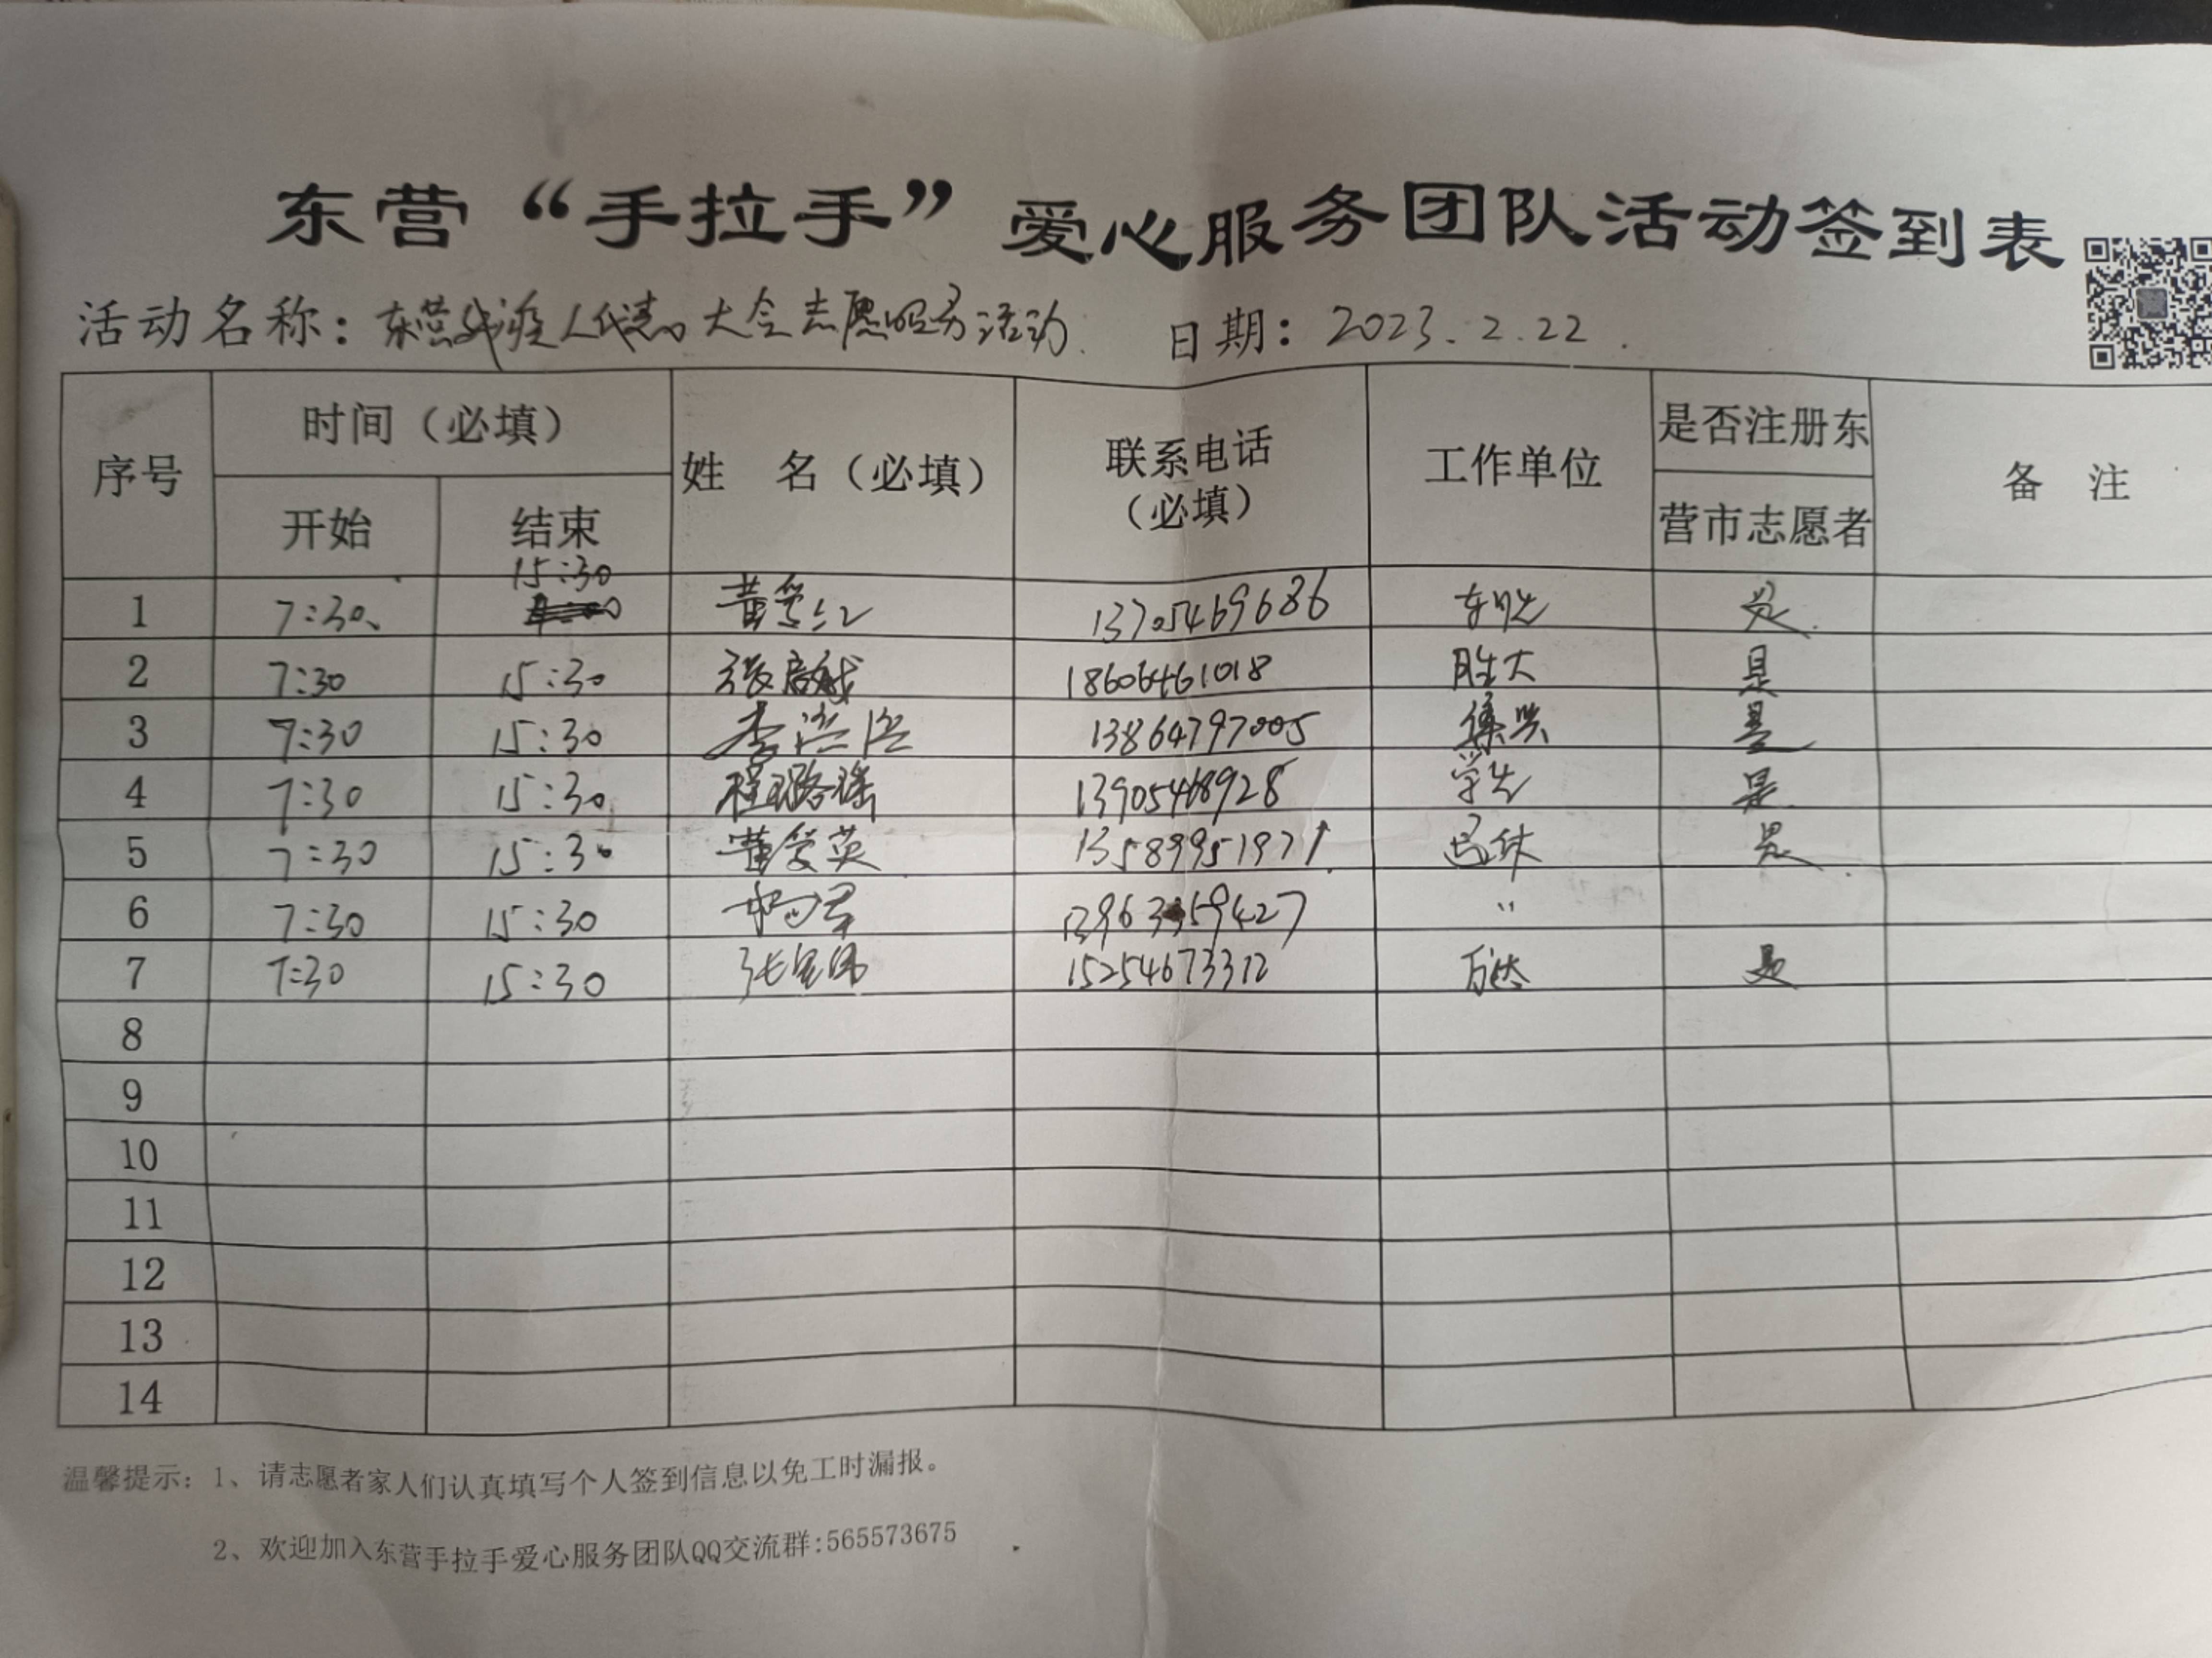 东营“手拉手”爱心服务团队活动签到表
活动名称：东营残疾人代表大会志愿服务活动. 日期：2023.2.22.
序号 时间（必填） 姓 名（必填） 联系电话（必填） 工作单位 是否注册东营市志愿者 备 注
开始 结束
15:30
1 7:30 黄爱红 13705469686 是
2 7:30 15:30 18606461018 胜大 是
3 7:30 15:30 李滨滨 13864797005 集兴 是
4 7:30 15:30 程璐瑶 13905468928 学生 是
5 7:30 15:30 黄爱英 13589951971 退休 是
6 7:30 15:30 〃
7 7:30 15:30 15254673312 万达 是
8
9
10
11
12
13
14
温馨提示：1、请志愿者家人们认真填写个人签到信息以免工时漏报。
2、欢迎加入东营手拉手爱心服务团队QQ交流群:565573675